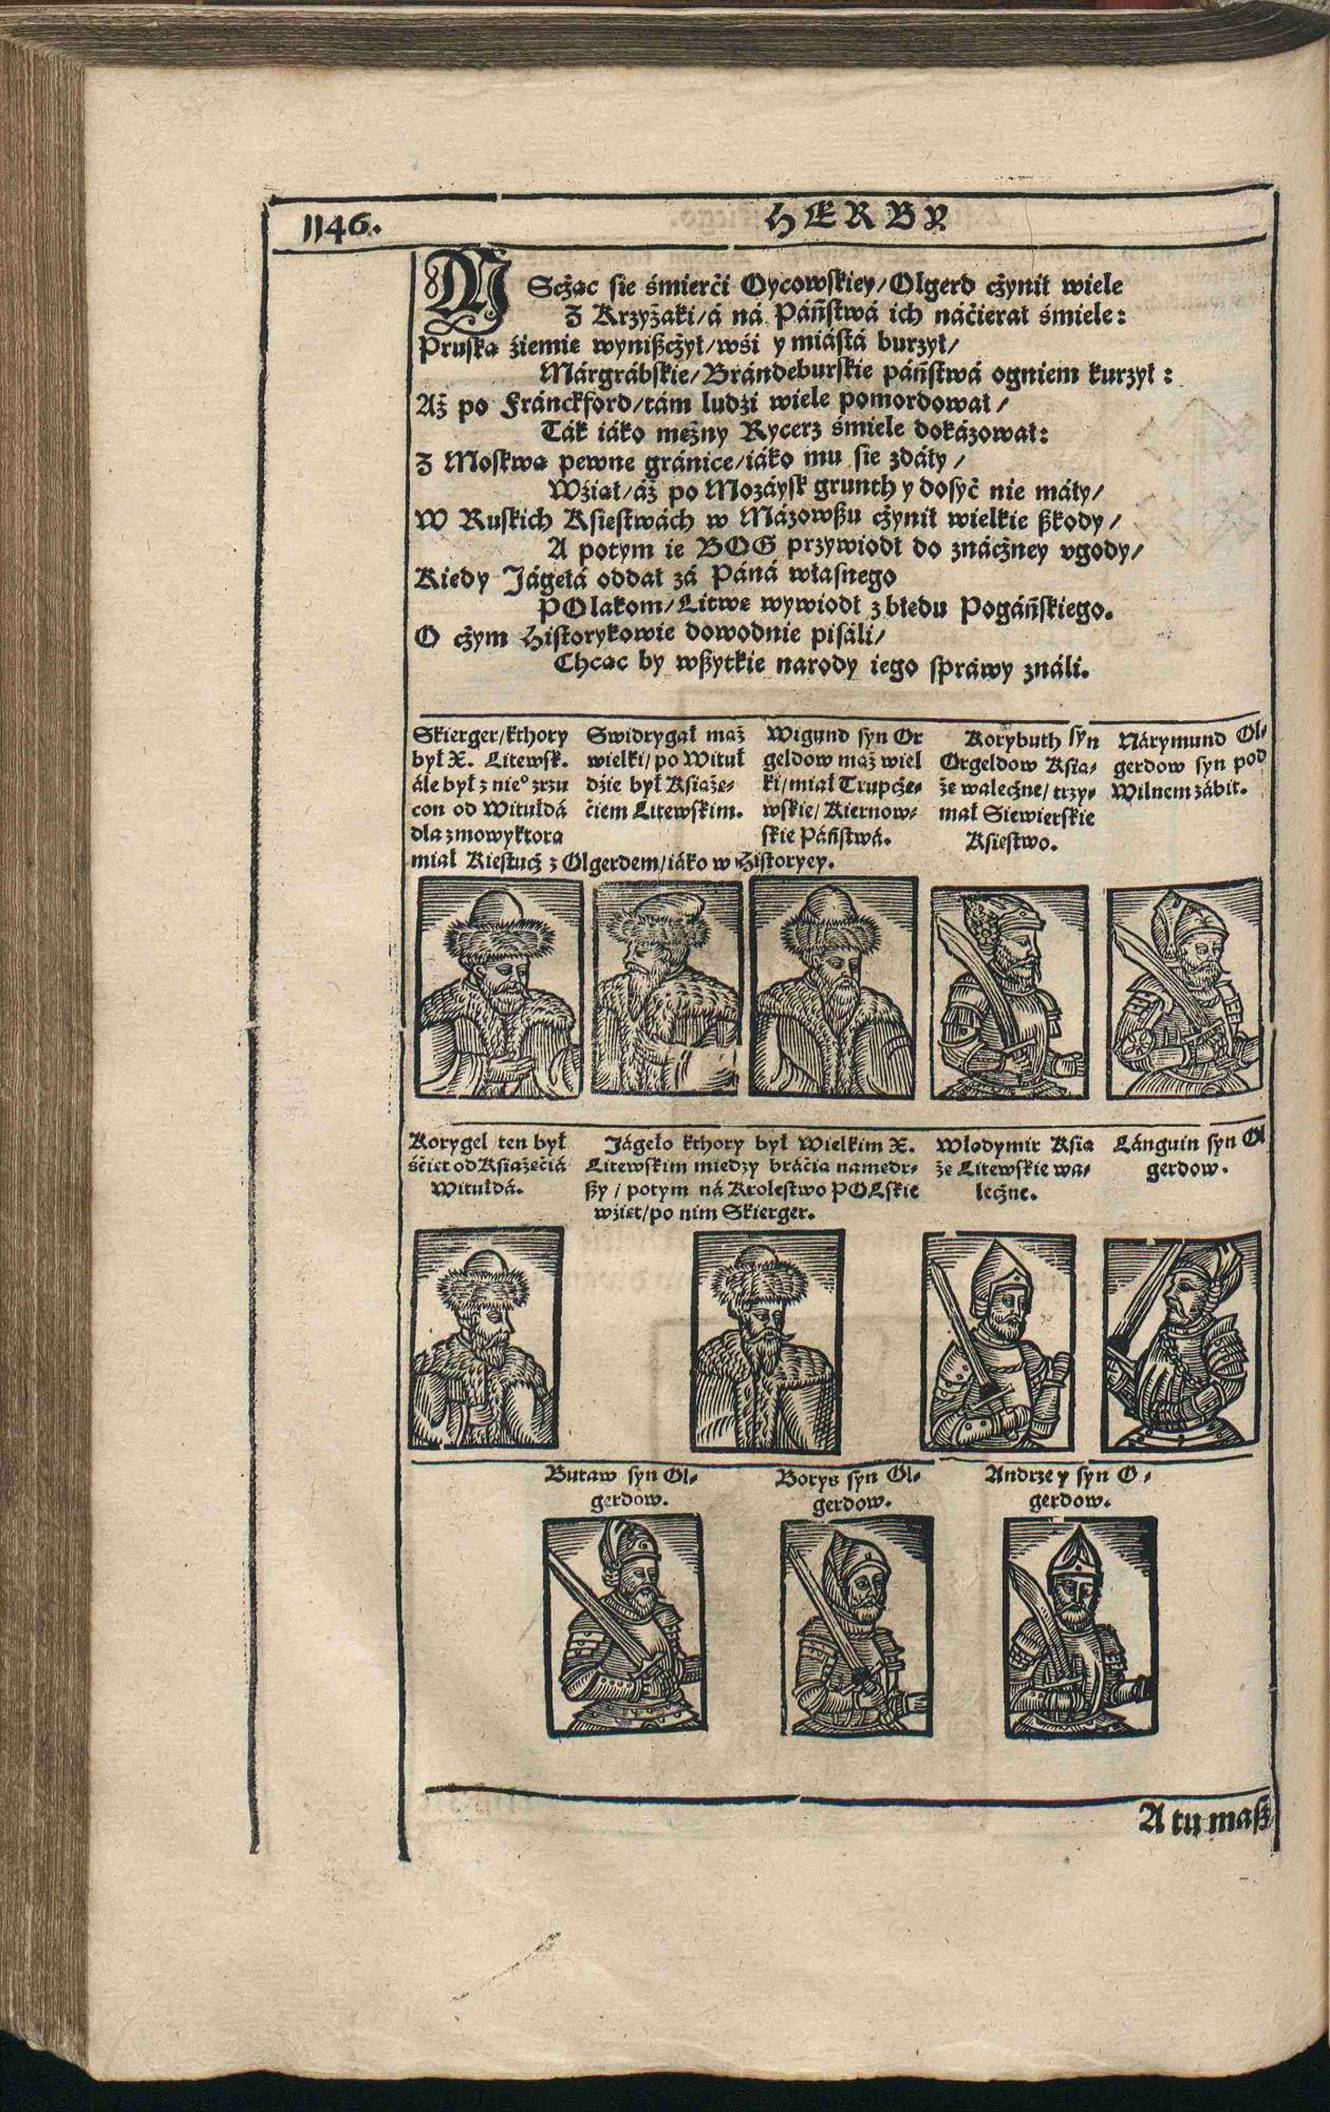 1146.
HERBY
MScżąc się śmierći Oycowskiey/Olgerd cżynił wiele
Z Krzyżaki/á ná Páństwá ich náćierał śmiele:
Pruską źiemię wynißcżył/wśi y miástá burzył/
Márgrábskie/Brándeburskie páństwá ogniem kurzył:
Aż po Fránckford/tám ludzi wiele pomordował/
Ták iáko mężny Rycerz śmiele dokázował:
Z Moskwą pewne gránice/iáko mu się zdáły/
Wźiął/áż po Mozáysk grunth y dosyć nie máły/
W Ruskich Księstwách w Mázowßu cżynił wielkie ßkody/
A potym ie BOG przywiodł do znácżney vgody/
Kiedy Jágełá oddał zá Páná własnego
POlakom/Litwę wywiodł z błędu Pogáńskiego.
O cżym Historykowie dowodnie pisáli/
Chcąc by wßytkie narody iego spráwy ználi.
Skierger/kthory
był X. Litewsk.
ále był z nieº zrzu
con od Witułdá
dla zmowy ktorą
miał Kiestuć z Olgerdem/iáko w Historyey.
Swidrygał mąż
wielki/po Wituł
dźie był Książę-
ćiem Litewskim.
Wigund syn Or
geldow mąż wiel
ki/miał Trupcże-
wskie/Kiernow-
skie Páństwá.
Korybuth syn
Orgeldow Ksią-
żę walecżne/trzy-
mał Siewierskie
Księstwo.
Nárymund Ol-
gerdow syn pod
Wilnem zábit.
Korygel ten był
śćięt od Książęćiá
Witułdá.
Jágeło kthory był Wielkim X.
Litewskim miedzy bráćią namędr-
ßy/potym ná Krolestwo POLskie
wźięt/po nim Skierger.
Włodymir Ksią
żę Litewskie wa-
lecżne.
Lánguin syn Ol
gerdow.
Butaw syn Ol-
gerdow.
Borys syn Ol-
gerdow.
Andrzey syn O-
gerdow.
A tu maß